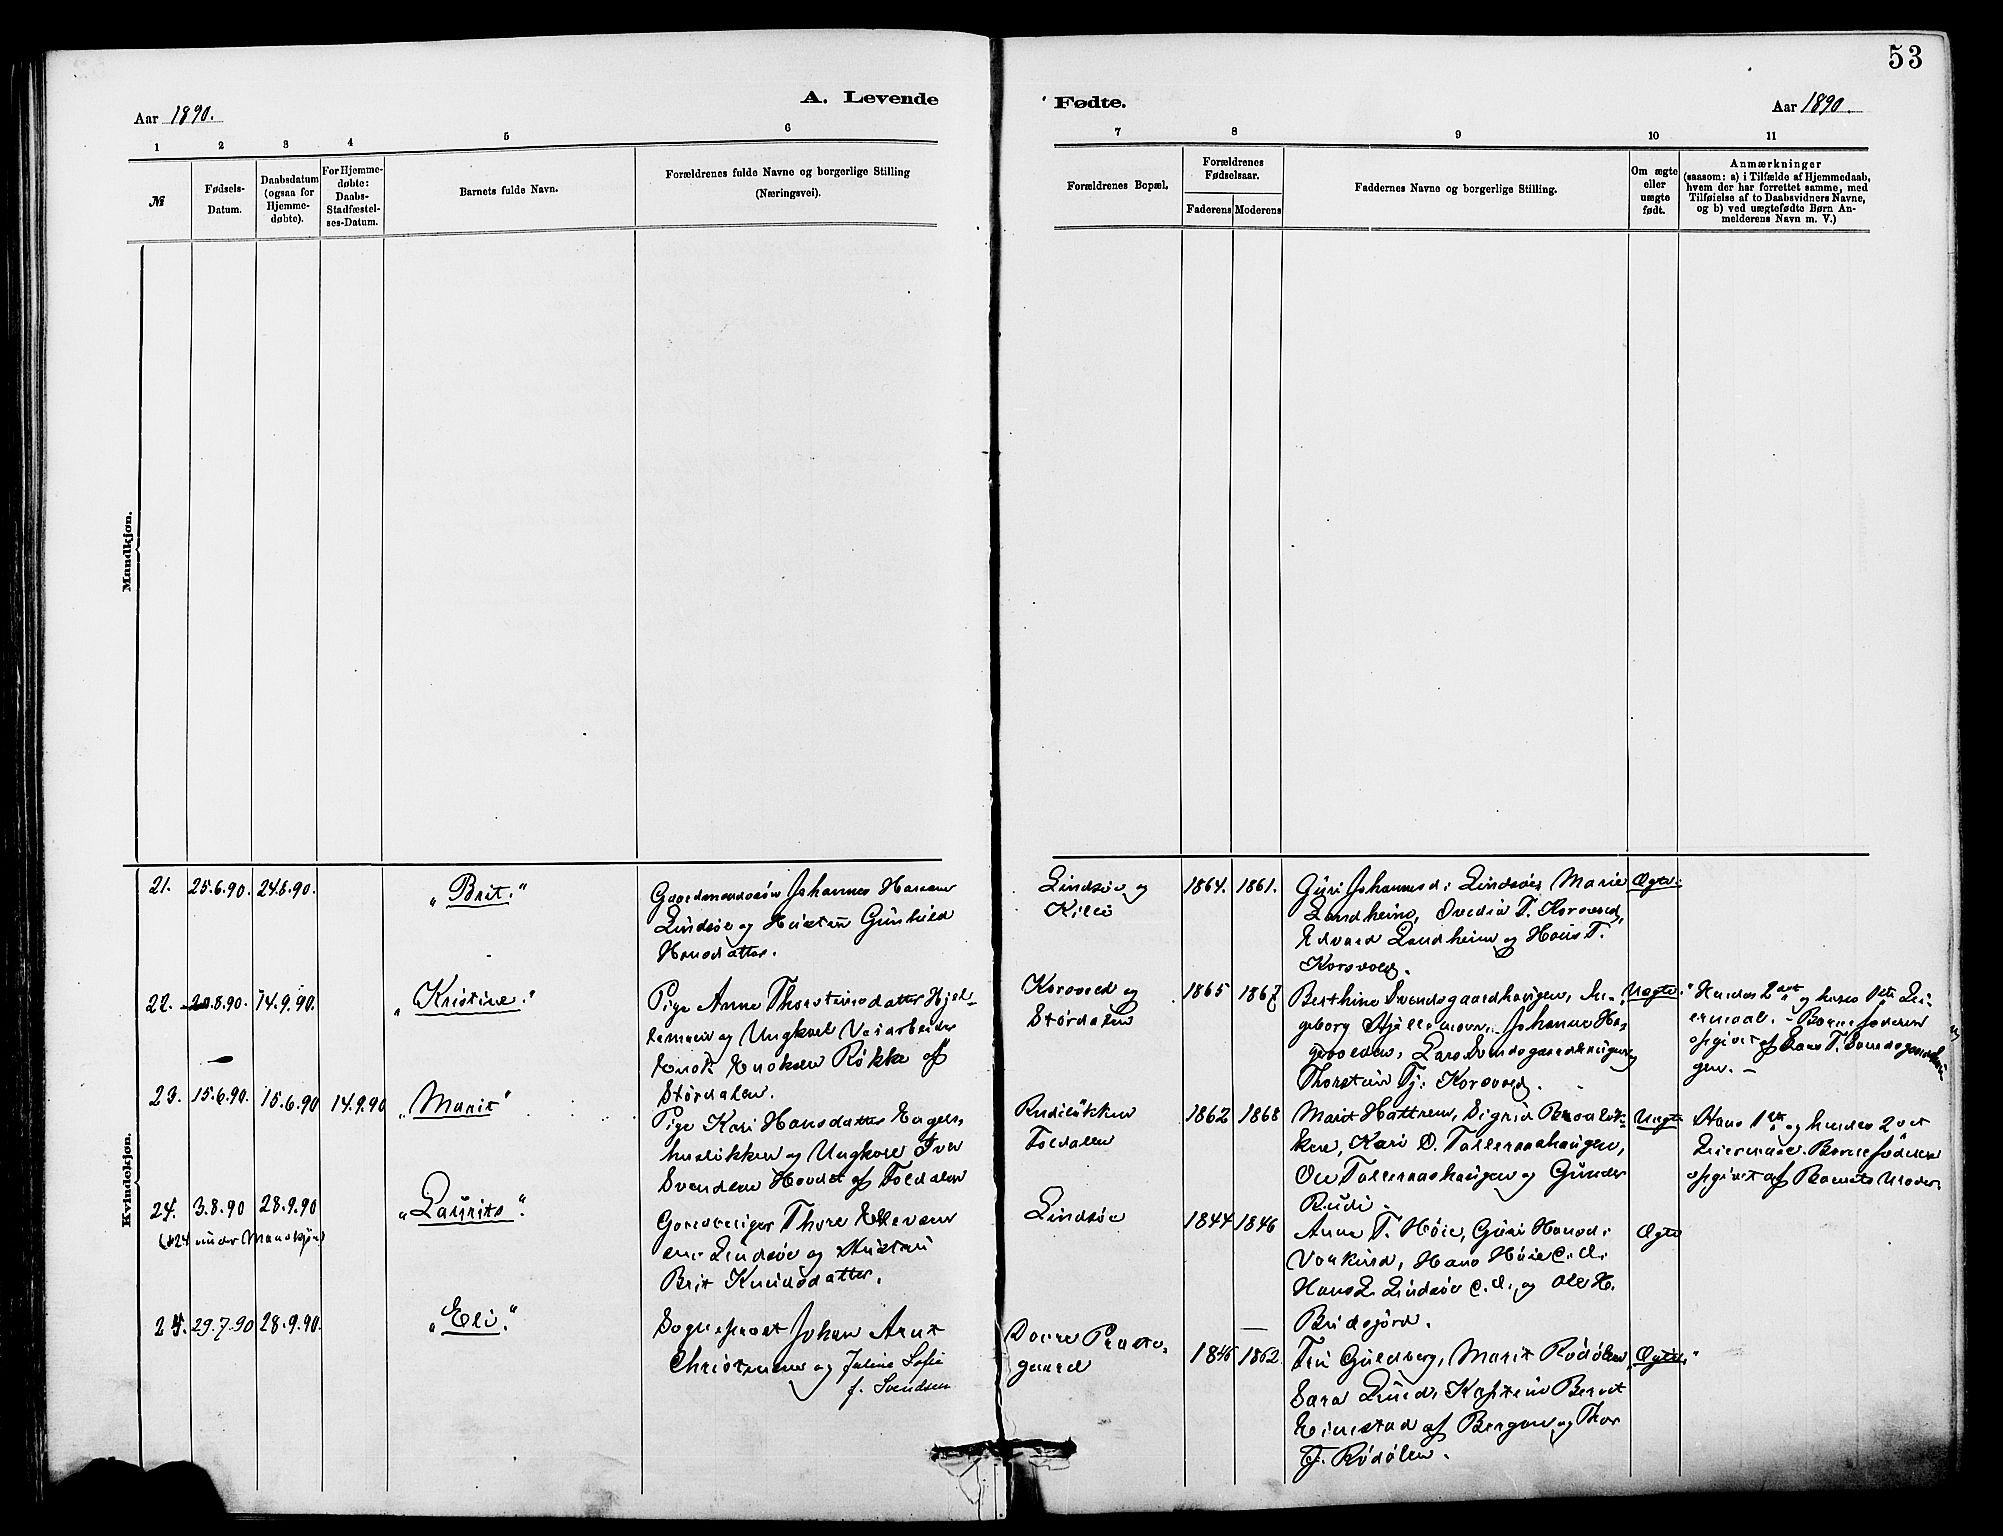 53
A. Levende Fødte.
Aar 1890.
Aar 1890.
1 2 3 4 5 6 7 8 9 10 11
№
Fødsels-
Datum.
Daabsdatum
(ogsaa for
Hjemme-
døbte).
For Hjemme-
døbte:
Daabs-
Stadfæstel-
ses-Datum.
Barnets fulde Navn.
Forældrenes fulde Navne og borgerlige Stilling
(Næringsvei).
Forældrenes Bopæl.
Forældrenes
Fødselsaar.
Faderens Moderens
Faddernes Navne og borgerlige Stilling.
Om ægte
eller
uægte
født.
Anmærkninger
(saasom: a) i Tilfælde af Hjemmedaab,
hvem der har forrettet samme, med
Tilføielse af to Daabsvidners Navne,
og b) ved uægtefødte Børn An-
melderens Navn m. V.)
Mandkjøn.
Kvindekjøn.
21. 25.6.90. 24.8.90. "Brit."
Gaardmandssøn Johannes Hansen
Lindsøe og Hustru Gunhild
Hansdatter.
Lindsøe og
1864. 1861.
Guri Johannesd: Lindsøe, Marie
Landheim, Ovedia T. Korsvold,
Edvard Landheim og Hans T.
Korsvold.
Ægte.
22. 20.8.90. 14.9.90. "Kristine."
Pige Anne Thorsteinsdatter Hjel-
og Ungkarl Veiarbeider
Enok Enoksen Røkke af
Størdalen.
Korsvold og
Størdalen
1865 1867
Berthine Svendsgaardhaugen, In-
geborg Johanne Ha-
Lars Svendsgaardhaugen og
Thorstein Tj: Korsvold.
Uægte.
Hendes 2det og hans 1ste Lei-
ermaal. – Barnefaderen
opgivet af Lars T. Svendsgaardhau-
gen. –
23. 15.6.90. 15.6.90 14.9.90 "Marit"
Pige Kari Hansdatter Engels-
husløkken og Ungkarl Iver
Svendsen Hovdet af Foldalen
Rudiløkken
Foldalen
1862 1868
Marit Hattrem, Sigrid
Kari O. Talleraashaugen,
Ole Talleraashaugen og Gunder
Rudi.
Uægte
Hans 1ste og hendes 2det
Leiermaal. Barnefaderen
opgivet af Barnets Moder.
24. 3.8.90 28.9.90 "Laurits."
under Mandkjøn)
Gaardbruger Thore
Lindsøe og Hustru
Brit Knudsdatter.
Lindsøe
1844 1846
Anne T. Høie, Guri Hansd:
Vorkind, Hans Høie
Hans L. Lindsøe og Ole H.
Bridsjord.
Ægte
25. 29.7.90 28.9.90. "Eli."
Sogneprest Johan Arnt
Christensen og Juline Sofie
f. Svendsen
Dovre Præste-
gaard
1846 1862
Fru Guldberg, Marit Rødølen,
Sara Lund, Kaptein Bernt
af Bergen, og Thor
E. Rødølen.
"Ægte."